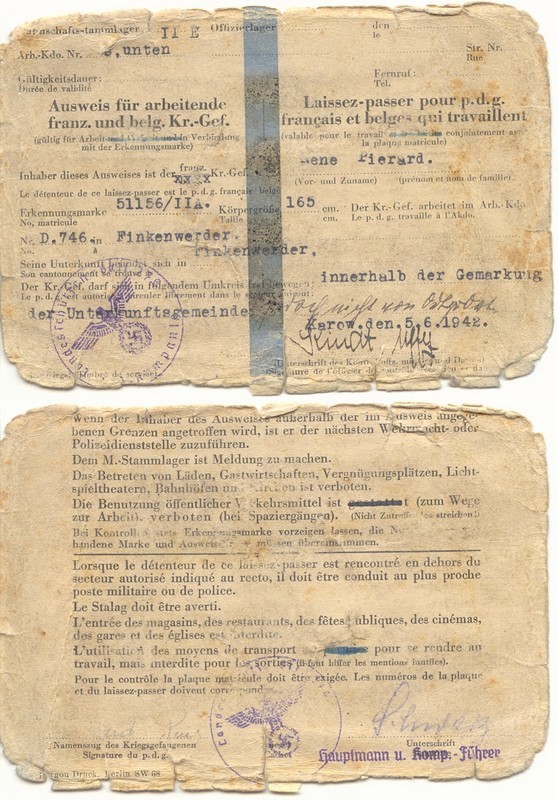 II E Offizierlager
den
le
Arb.-Kdo. Nr. unten
Str. Nr.
Rue
Gültigkeitsdauer:
Durée de validité
Fernruf:
Tel.
Ausweis für arbeitende
franz. und belg. Kr.-Gef.
(gültig für in Verbindung
mit der Erkennungsmarke)
Laissez-passer pour p.d.g.
français et belges qui travaillent
(valable pour le travail conjointement
la plaque matricule)
Inhaber dieses Ausweises ist der franz. Kr.-Gef.
Pierard.
Le détenteur de ce laissez-passer est le p.d.g. français
(Vor- und Zuname) (prénom et nom de famille).
Erkennungsmarke 51156/IIA. Körpergröße 165 cm. Der Kr.-Gef. arbeitet im Arb.-Kdo.
No. matricule Taille cm. Le p.d.g. travaille à l'Akdo.
Nr. D.746 in Finkenwerder.
Finkenwerder,
Seine Unterkunft befindet sich in
Son cantonnement se trouve à
innerhalb der Gemarkung
Der Kr.-Gef. darf sich in folgendem Umkreis frei bewegen:
Le p.d.g. est autorisé à circuler librement dans le secteur suivant:
der Unterkunftsgemeinde
Karow, den. 5.6.1942.
Wenn der Inhaber des Ausweises außerhalb der im Ausweis angege-
benen Grenzen angetroffen wird, ist er der nächsten Wehrmacht- oder
Polizeidienststelle zuzuführen.
Dem M.-Stammlager ist Meldung zu machen.
Das Betreten von Läden, Gastwirtschaften, Vergnügungsplätzen, Licht-
spieltheatern, Bahnhöfen und Kirchen ist verboten.
Die Benutzung öffentlicher Verkehrsmittel ist (zum Wege
zur Arbeit), verboten (bei Spaziergängen). (Nicht Zutreffendes streichen!)
Bei Kontrollen Erkennungsmarke vorzeigen lassen, die
handene Marke und Ausweis müssen übereinstimmen.
Lorsque le détenteur de ce laissez-passer est rencontré en dehors du
secteur autorisé indiqué au recto, il doit être conduit au plus proche
poste militaire ou de police.
Le Stalag doit être averti.
L'entrée des magasins, des restaurants, des fêtes publiques, des cinémas,
des gares et des églises est interdite.
L'utilisation des moyens de transport pour se rendre au
travail, mais interdite pour les sorties (il faut biffer les mentions inutiles).
Pour le contrôle la plaque matricule doit être exigée. Les numéros de la plaque
et du laissez-passer doivent
Namenszug des Kriegsgefangenen
Signature du p.d.g.
Unterschrift
Hauptmann u. Komp.-Führer
Druck, Berlin SW 68